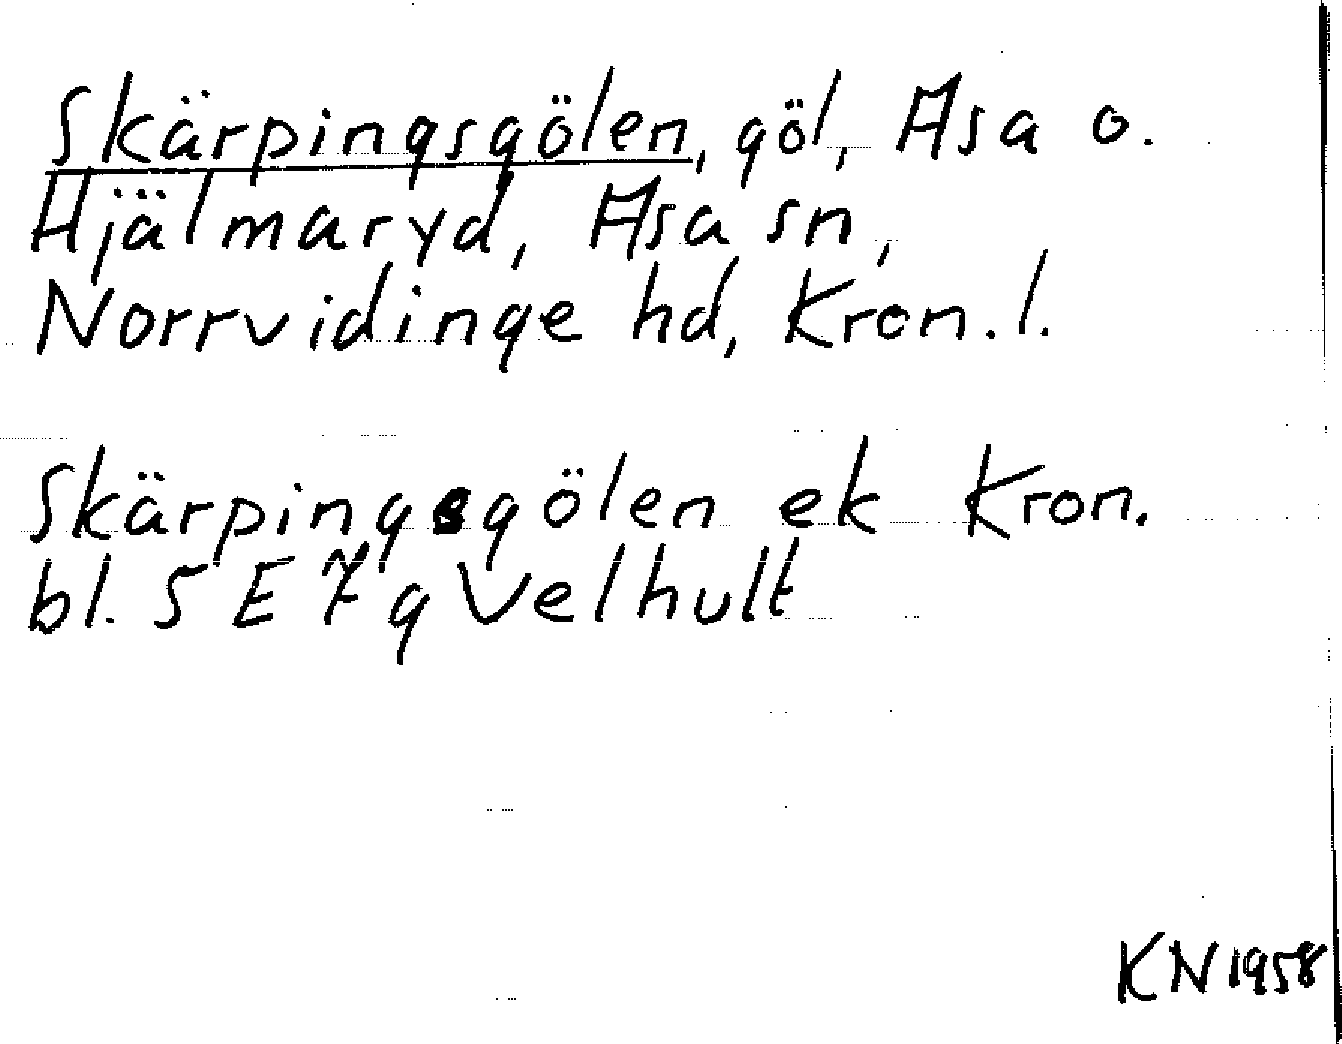 Skärpingsgölen, göl, Asa o.
Hjälmaryd, Asa sn,
Norrvidinge hd, Kron. l.
Skärpingsgölen ek Kron.
bl. 5 E 7 g Velhult
KN 1958